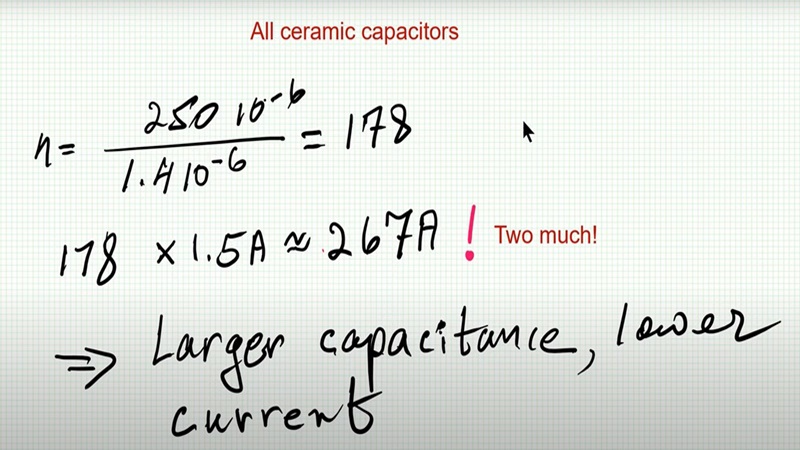 All ceramic capacitors
n = 250 10^-6 / 1.4 10^-6 = 178
178 × 1.5A ≈ 267A ! Two much!
⇒ Larger capacitance, lower
current